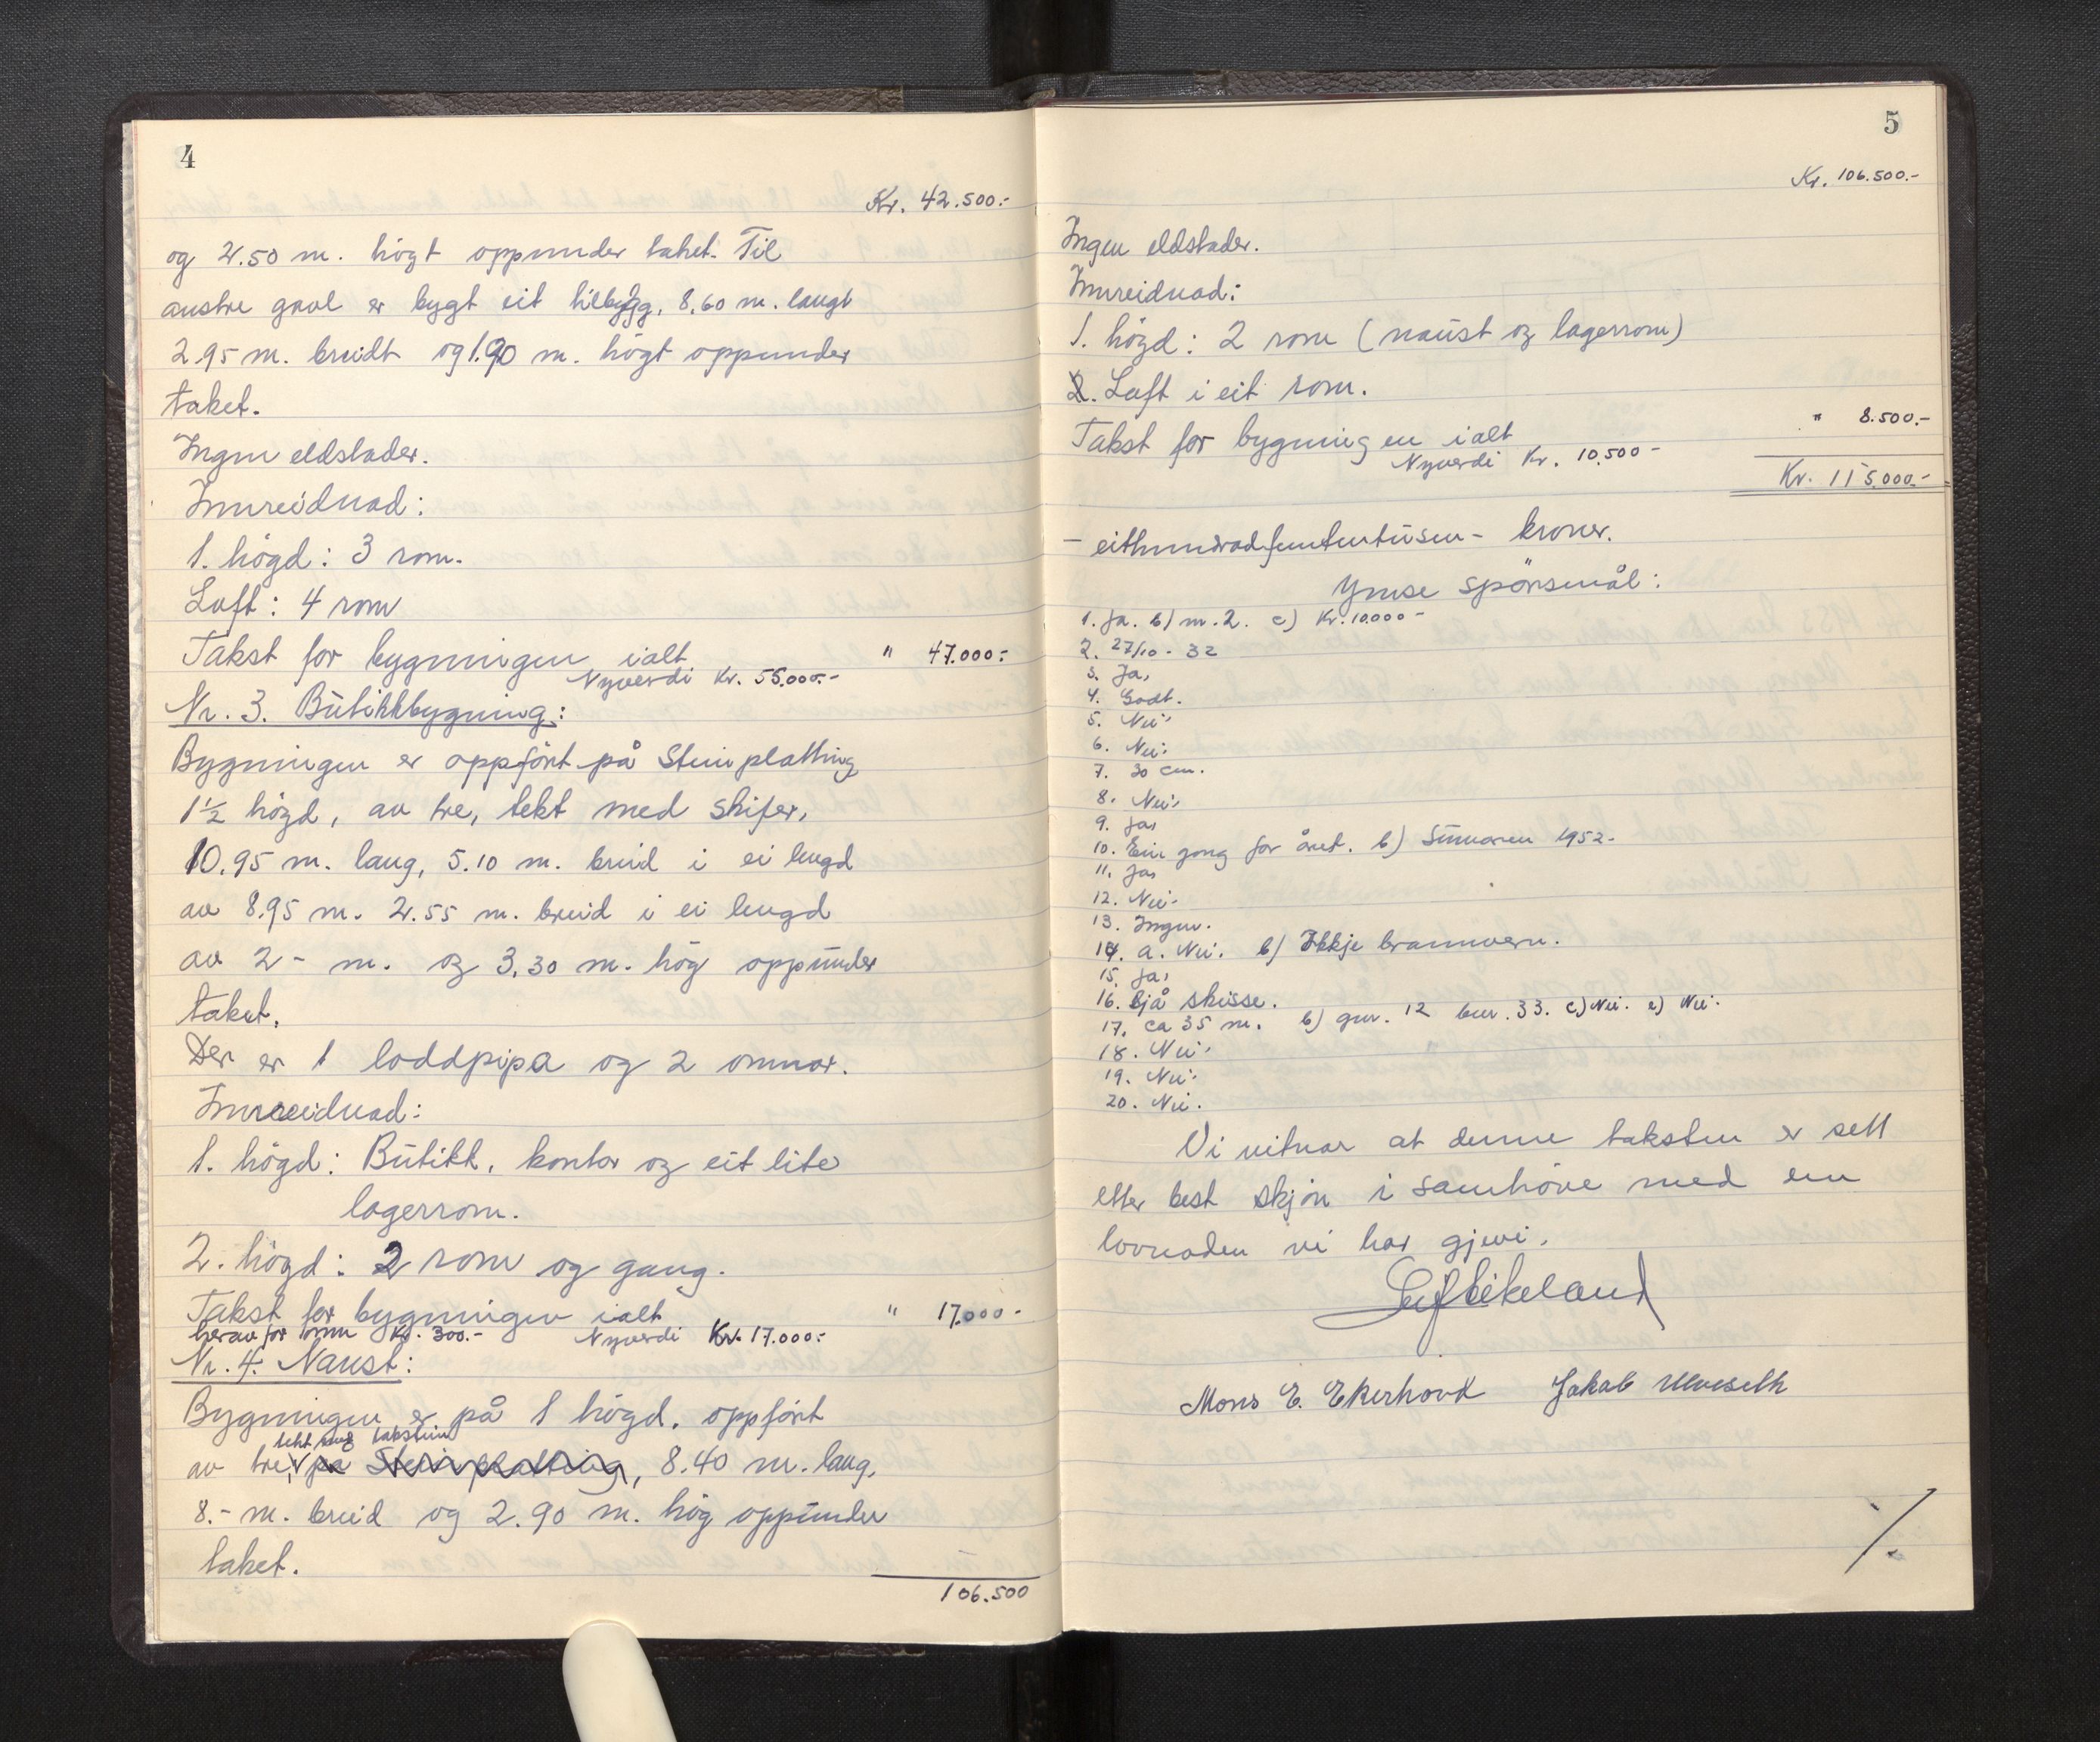 4
Kr. 42.500.-
og 2.50 m. högt oppunder taket. Til
austre gavl er bygt eit tilbygg, 8,60 m. langt
2.95 m. breidt og 1.90 m. högt oppunder
taket.
Ingen eldstader.
Innreidnad:
1. högd: 3 rom.
Loft: 4 rom
Takst for bygningen ialt " 47.000.-
Nyverdi Kr. 55.000.-
Nr. 3. Butikkbygning:
Bygningen er oppfört på Steinplatting
1 1/2 högd, av tre, tekt med skifer,
10.95 m. lang, 5.10 m. breid i ei lengd
av 8.95 m. 2.55 m. breid i ei lengd
av 2 - m. og 3,30 m. hög oppunder
taket.
Der er 1 loddpipa og 2 omnar.
Innreidnad:
1. högd: Butikk, kontor og eit lite
lagerrom.
2. högd: 2 rom og gang.
Takst for bygningen ialt " 17.000 -
herav for omn Kr. 300.- Nyverdi Kr. 17.000.-
Nr. 4. Naust:
Bygningen er på 1 högd, oppfört
tekt med takstein
av tre, på Steinplatting, 8.40 m. lang,
8.- m. breid og 2.90 m. hög oppunder
taket.
106.500
5
Kr. 106.500.-
Ingen eldstader.
Innreidnad:
1. högd: 2 rom (naust og lagerrom)
2. Loft i eit rom.
Takst for bygningen ialt " 8.500.-
Nyverdi Kr. 10.500 -
Kr. 115.000.-
- eithundradfemtentusen - kroner.
Ymse spörsmål:
1. Ja. b) m. 2. c) Kr. 10.000 -
2. 27/10 - 32
3. Ja,
4. Godt.
5. Nei.
6. Nei.
7. 30 cm.
8. Nei.
9. Ja,
10. Ein gong for året. b) Sumaren 1952.
11. Ja,
12. Nei.
13. Ingen.
14. a. Nei. b) Ikkje brannvern.
15. Ja,
16. Sjå skisse.
17. ca 35 m. b) gnr. 12 bnr. 33. c) Nei. e) Nei.
18. Nei.
19. Nei.
20. Nei.
Vi vitnar at denne taksten er sett
etter best skjön i samhöve med den
lovnaden vi har gjevi.
Leif Eikeland
Mons E. Ekerhovd Jakob Ulveseth